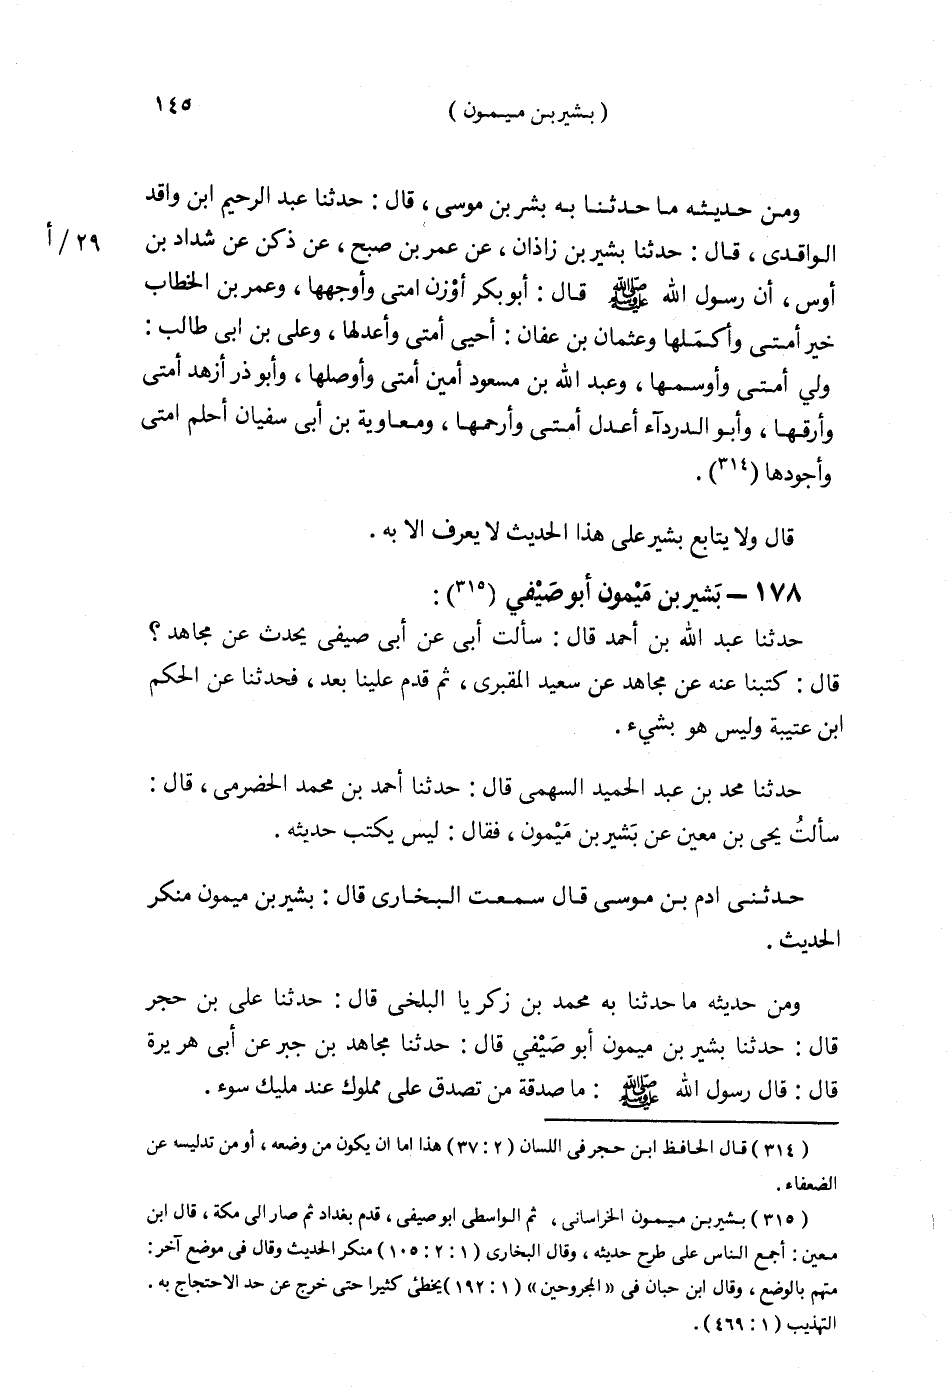 ( بشير بن ميمون )
١٤٥
ومن حديثه ما حدثنا به بشر بن موسى ، قال : حدثنا عبد الرحيم ابن واقد
الواقدى ، قال : حدثنا بشير بن زاذان ، عن عمر بن صبح ، عن ذكن عن شداد بن
٢٩ / أ
أوس ، أن رسول الله ﷺ قال : أبو بكر أوْزن امتى وأوجهها ، وعمر بن الخطاب
خير أمتى وأكمَلها وعثمان بن عفان : أحيى أمتى وأعدلها ، وعلى بن ابى طالب :
ولي أمتى وأوسمها ، وعبد الله بن مسعود أمين أمتى وأوصلها ، وأبو ذر أزهد أمتى
وأرقها ، وأبو الدردآء أعدل أمتى وأرحمها ، ومعاوية بن أبى سفيان أحلم امتى
وأجودها (٣١٤) .
قال ولا يتابع بشير على هذا الحديث لا يعرف الا به .
١٧٨ – بَشير بن مَيْمون أبو صَيْفي (٣١٥) :
حدثنا عبد الله بن أحمد قال : سألت أبى عن أبى صيفى يحدث عن مجاهد ؟
قال : كتبنا عنه عن مجاهد عن سعيد المقبرى ، ثم قدم علينا بعد ، فحدثنا عن الحكم
ابن عتيبة وليس هو بشيء .
حدثنا محمد بن عبد الحميد السهمى قال : حدثنا أحمد بن محمد الحضرمى ، قال :
سألتُ يحى بن معين عن بَشير بن مَيْمون ، فقال : ليس يكتب حديثه .
حدثنى ادم بن موسى قال سمعت البخارى قال : بشير بن ميمون منكر
الحديث .
ومن حديثه ما حدثنا به محمد بن زكريا البلخى قال : حدثنا على بن حجر
قال : حدثنا بشير بن ميمون أبو صَيْفي قال : حدثنا مجاهد بن جبر عن أبى هريرة
قال : قال رسول الله ﷺ : ما صدقة من تصدق على مملوك عند مليك سوء .
( ٣١٤ ) قال الحافظ ابن حجر فى اللسان (٢ : ٣٧) هذا اما ان يكون من وضعه ، أو من تدليسه عن
الضعفاء .
( ٣١٥ ) بشير بن ميمون الخراسانى ، ثم الواسطى ابو صيفى ، قدم بغداد ثم صار الى مكة ، قال ابن
معين : أجمع الناس على طرح حديثه ، وقال البخارى (١ : ٢ : ١٠٥) منكر الحديث وقال فى موضع آخر :
متهم بالوضع ، وقال ابن حبان فى «المجروحين» (١ : ١٩٢) يخطئ كثيرا حتى خرج عن حد الاحتجاج به .
التهذيب (١ : ٤٦٩) .